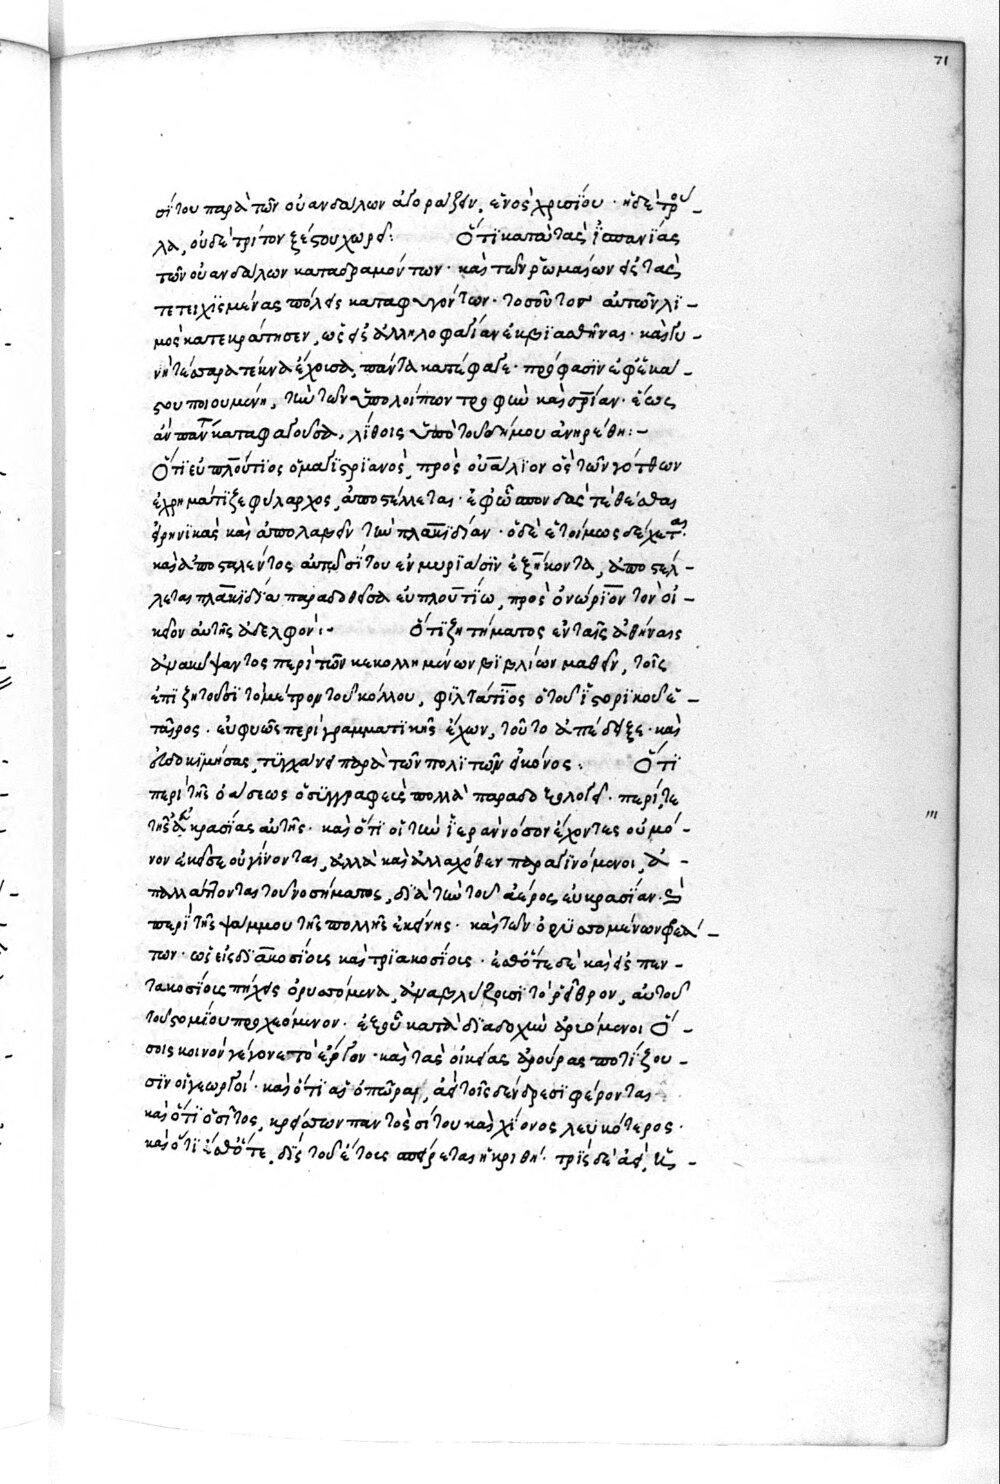 71
σίτου παρὰ τῶν οὐανδάλων ἀγοράζειν, ἑνὸς χρυσίου· ἡ δὲ τρού-
λα, οὐδὲ τρίτον ξέστου χωρεῖ: Ὅτι κατὰ τὰς ἱσπανίας
τῶν οὐανδάλων καταδραμόντων· καὶ τῶν ῥωμαίων εἰς τὰς
τετειχισμένας πόλεις καταφυγόντων· τοσοῦτον αὐτῶν λι-
μὸς κατεκράτησεν, ὡς εἰς ἀλληλοφαγίαν ἐκβιασθῆναι· καὶ γυ-
νὴ τέσσαρα τέκνα ἔχουσα, πάντα κατέφαγε· πρόφασιν ἐφ' ἑκά-
στου ποιουμένη, τὴν τῶν ὑπολοίπων τροφὴν καὶ σρίαν· ἕως
ἂν παντ καταφαγοῦσα, λίθοις ὑπὸ τοῦ δήμου ἀνηρέθη: -
Ὅτι εὐπλούτιος ὁ μαγιστριανὸς, πρὸς οὐάλιον ὃς τῶν γότθων
ἐχρημάτιζε φύλαρχος, ἀποστέλλεται· ἐφ' ᾧ σπονδάς τε θέσθαι
εἰρηνικὰς καὶ ἀπολαβεῖν τὴν πλακιδίαν· ὁ δὲ ἑτοίμως δέχεται·
καὶ ἀποσταλέντος αὐτῷ σίτου ἐν μυριάσιν ἑξήκοντα, ἀποστέλ-
λεται πλακιδία παραδοθεῖσα εὐπλουτίω, πρὸς ὀνώριον τὸν οἰ-
κεῖον αὐτῆς ἀδελφόν: - Ὅτι ζητήματος ἐν ταῖς ἀθήναις
ἀνακύψαντος περὶ τῶν κεκολλημένων βιβλίων μαθεῖν, τοῖς
ἐπιζητοῦσι τὸ μέτρον τοῦ κόλλου, φιλτάτιος ὁ τοῦ ἱστορικοῦ ἑ-
ταῖρος· εὐφυῶς περὶ γραμματικῆς ἔχων, τοῦτο ἀπέδειξε· καὶ
εὐδοκιμήσας, τυγχάνει παρὰ τῶν πολιτῶν εἰκόνος: Ὅτι
περὶ τῆς ὀάσεως ὁ συγγραφεὺς πολλὰ παραδοξολογεῖ· περί τε
τῆς εὐκρασίας αὐτῆς· καὶ ὅτι οἱ τὴν ἱερὰν νόσον ἔχοντες οὐ μό-
νον ἐκεῖσε οὐ γίνονται, ἀλλὰ καὶ ἀλλαχόθεν παραγινόμενοι, ἀ-
παλλάττονται τοῦ νοσήματος, διὰ τὴν τοῦ ἀέρος εὐκρασίαν· καὶ
περὶ τῆς ψάμμου τῆς πολλῆς ἐκείνης· καὶ τῶν ὀρυσσομένων φρεά-
των· ὡς εἰς διακοσίους καὶ τριακοσίους· ἔσθ' ὅτε δὲ καὶ εἰς πεν-
τακοσίους πήχεις ὀρυσσόμενα, ἀναβλύζουσι τὸ ῥεῖθρον, αὐτοῦ
τοῦ στομίου προχεόμενον· ἐξ οὗ κατὰ διαδοχὴν ἀρυόμενοι ὅ-
σοις κοινὸν γέγονε τὸ ἔργον· καὶ τὰς οἰκείας ἀρούρας ποτίζου-
σιν οἱ γεωργοί· καὶ ὅτι αἱ ὀπῶραι, ἀεὶ τοῖς δένδρεσι φέρονται·
καὶ ὅτι ὁ σῖτος, κρείσσων παντὸς σίτου καὶ χίονος λευκότερος·
καὶ ὅτι ἔσθ' ὅτε, δὶς τοῦ ἔτους σπείρεται ἡ κριθή· τρὶς δὲ ἀεὶ, κ-